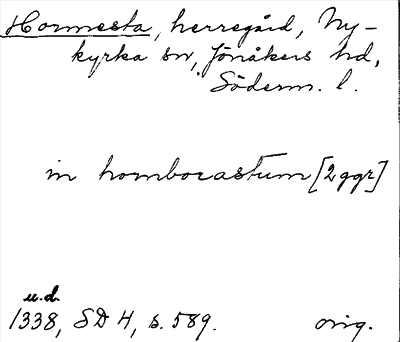 Hormesta, herregård, Ny-
kyrka sn, Jönåkers hd,
Söderm. l.
in homborastum [2ggr]
u.d.
1338, SD 4, s. 589. orig.